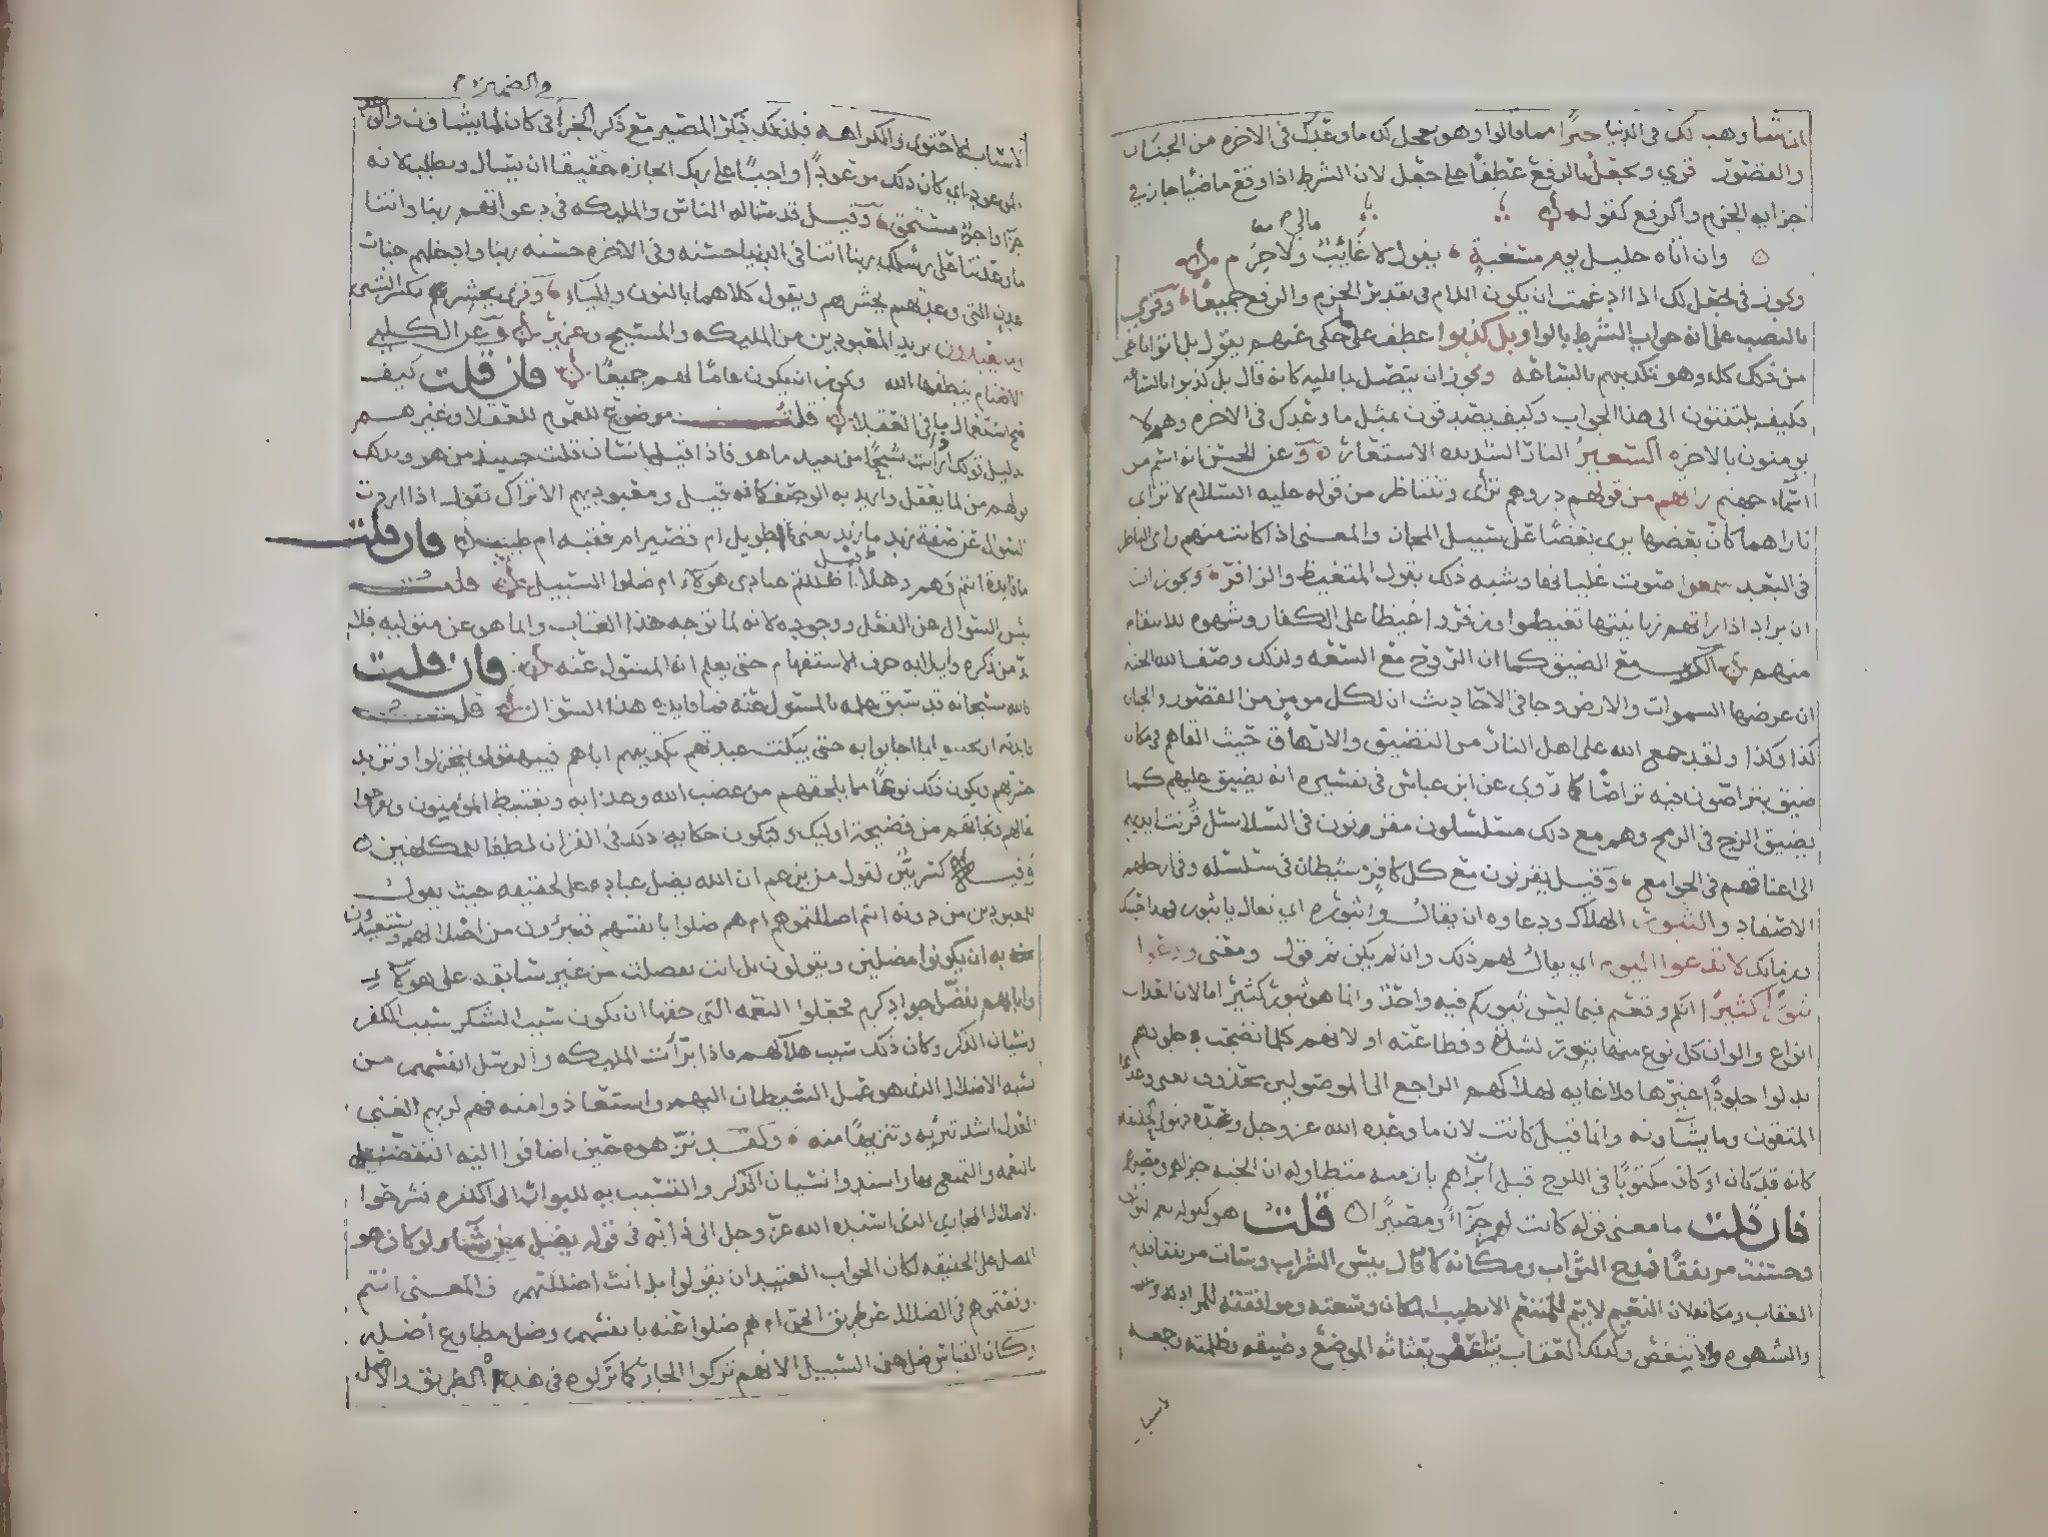 ان شا وهب لك في الدنيا خيرًا مما قالوا وهو يعجل لك ما وعدك في الاخره من الجنات
والقصور قري ويجعل بالرفع عطفًا على جعل لان الشرط اذا وقع ماضيًا جاز في
جزايه الجزم والرفع كقوله
وان اتاه خليل يوم مسغبة يقول لا غايب مالي ولا حرم
ويجوز في يجعل لك اذا ادغمت ان يكون اللام في تقدير الجزم والرفع جميعًا وقري
بالنصب على انه جواب الشرط بالواو بل كذبوا عطف على ما حكى عنهم يقول بل اتوا باعجب
من ذلك كله وهو تكذيبهم بالساعه ويجوز ان يتصل بما يليه كانه قال بل كذبوا بالساعه
فكيف يلتفتون الى هذا الجواب وكيف يصدقون بمثل ما وعدك في الاخره وهم لا
يومنون بالاخره السعير النار الشديده الاستعار وعن الحسن انه اسم من
اسماء جهنم راتهم من قولهم دورهم تراى وتتناظر من قوله عليه السلام لا تراى
ناراهما كان بعضها يرى بعضًا على سبيل المجاز والمعنى اذا كانت منهم راى الناظر
في البعد سمعوا صوت غليانها وشبه ذلك بصوت المتغيظ والزافر ويجوز ان
ان يراد اذا راتهم زبانيتها تغيظوا وزفروا غيظًا على الكفار وشهوه للانتقام
منهم الكرب مع الضيق كما ان الروح مع السعه ولذلك وصف الله الجنه
ان عرضها السموات والارض وجا في الاحاديث ان لكل مومن من القصور والجنان
كذا وكذا ولقد جمع الله على اهل النار من التضييق والارهاق حيث القاهم في مكان
ضيق يتراصون فيه تراصًا كما روي عن ابن عباس في تفسيره انه يضيق عليهم كما
يضيق الزج في الرمح وهم مع ذلك مسلسلون مقرنون في السلاسل قرنت ايديهم
الى اعناقهم في الجوامع وقيل يقرنون مع كل كافر شيطان في سلسله وفي ارجلهم
الاصفاد والثبور الهلاك ودعاوه ان يقال وا ثبوره اي تعال يا ثبور فهذا حينك
وزمانك لا تدعوا اليوم اي يقال لهم ذلك وان لم يكن ثم قول ومعنى وادعوا
ثبورًا كثيرًا انكم وقعتم فيما ليس ثبوركم فيه واحدًا وانما هو ثبور كثير اما لان العذاب
انواع والوان كل نوع منها ثبور لشدته وفظاعته او لانهم كلما نضجت جلودهم
بدلوا جلودًا غيرها فلا غايه لهلاكهم الراجع الى الموصولين محذوف يعني وعدها
المتقون وما يشاونه وانما قيل كانت لان ما وعده الله عز وجل وحده فهو في تحققه
كانه قد كان او كان مكتوبًا في اللوح قبل ان براهم بازمنه متطاوله ان الجنه جزاهم ومصيرهم
فان قلت ما معنى قوله كانت لهم جزآءً ومصيرًا قلت هو كقوله نعم الثواب
وحسنت مرتفقًا فمدح الثواب ومكانه كما قال بيس الشراب وسات مرتفقا فذم
العقاب ومكانه لان النعيم لا يتم للمتنعم الا بطيب المكان وسعته وموافقته للمراد
والشهوه والا تنغص وكذلك العقاب يتضاعف بغثاثه الموضع وضيقه وظلمته وجمعه
لاسباب
والضمير لا
لاسباب الاجتوى والكراهه فلذلك ذكر المصير مع ذكر الجزا في كان لما يشاون والوعد
اي كان ذلك موعودًا واجبًا على ربك انجازه حقيقا ان يسال ويطلب لانه
جزآ واجر مستحق وقيل قد ساله الناس والمليكه في دعواتهم ربنا واتنا
ما وعدتنا على رسلك ربنا اتنا في الدنيا حسنه وفي الاخره حسنه ربنا وادخلهم جنات
عدن التي وعدتهم يحشرهم ويقول كلاهما بالنون والياء وقري يحشرهم بكسر الشين
وما يعبدون يريد المعبودين من المليكه والمسيح وعزير وعن الكلبي
الاصنام ينطقها الله ويجوز ان يكون عامًا لهم جميعًا فان قلت كيف
صح استعمال ما في العقلا قلت موضوع للعموم للعقلا وغيرهم
بدليل قولك اذا رايت شبحًا من بعيد ما هو فاذا قيل لك انسان قلت حينيذ من هو ويدلك
قولهم من لما يعقل واريد به الوصف كانه قيل ومعبوديهم الا تراك تقول اذا اردت
السوال عن صفة زيد ما زيد يعني اطويل ام قصير ام فقيه ام طبيب فان قلت
ما فايدة انتم وهم وهلا قيل اظللتم عبادي هولآء ام ضلوا السبيل قلت
ليس السوال عن الفعل ووجوده لانه لما توجه هذا العتاب وانما هو عن متوليه فلا
بد من ذكره وايلايه حرف الاستفهام حتى يعلم انه المسئول عنه فان قلت
فالله سبحانه قد سبق علمه بالمسئول عنه فما فايده هذا السؤال قلت
فايدته ان يجيبوا بما اجابوا به حتى يبكت عبدتهم بتكذيبهم اياهم فيبهتوا وينخزلوا وتزيد
حسرتهم ويكون ذلك نوعًا مما يلحقهم من غضب الله وعذابه ويغتبط المؤمنون ويفرحوا
بحالهم ونجاتهم من فضيحة اوليك وليكون حكايه ذلك في القران لطفا للمكلفين
وفيه كسر بيّن لقول من يزعم ان الله يضل عباده على الحقيقه حيث يقول
للمعبودين من دونه اانتم اضللتموهم ام هم ضلوا بانفسهم فيتبرؤن من اضلالهم ويستعيذون
به ان يكونوا مضلين ويقولون بل انت تفضلت من غير سابقه على هولآء
وابايهم تفضّل جواد كريم فجعلوا النعمه التي حقها ان تكون سبب الشكر سبب الكفر
ونسيان الذكر وكان ذلك سبب هلاكهم فاذا برّأت المليكه والرسل انفسهم من
نسبه الاضلال الذي هو عمل الشيطان اليهم واستعاذوا منه فهم لربهم الغني
العدل اشد تبريه وتنزيهًا منه ولقد نزّهوه حين اضافوا اليه التفضل
بالنعمه والتمتيع بها واسندوا نسيان الذكر والتسبب به للبوار الى الكفره فشرحوا
الاضلال المجازي الذي اسنده الله عزّ وجل الى ذاته في قوله يضل من يشاء ولو كان هو
المضل على الحقيقه لكان الجواب العتيد ان يقولوا بل انت اضللتهم والمعنى اانتم
اوقعتموهم في الضلال عن طريق الحق ام هم ضلوا عنه بانفسهم وضل مطاوع اضله
وكان القياس ضل عن السبيل الا انهم تركوا الجار كما تركوه في هداه الطريق والاصل